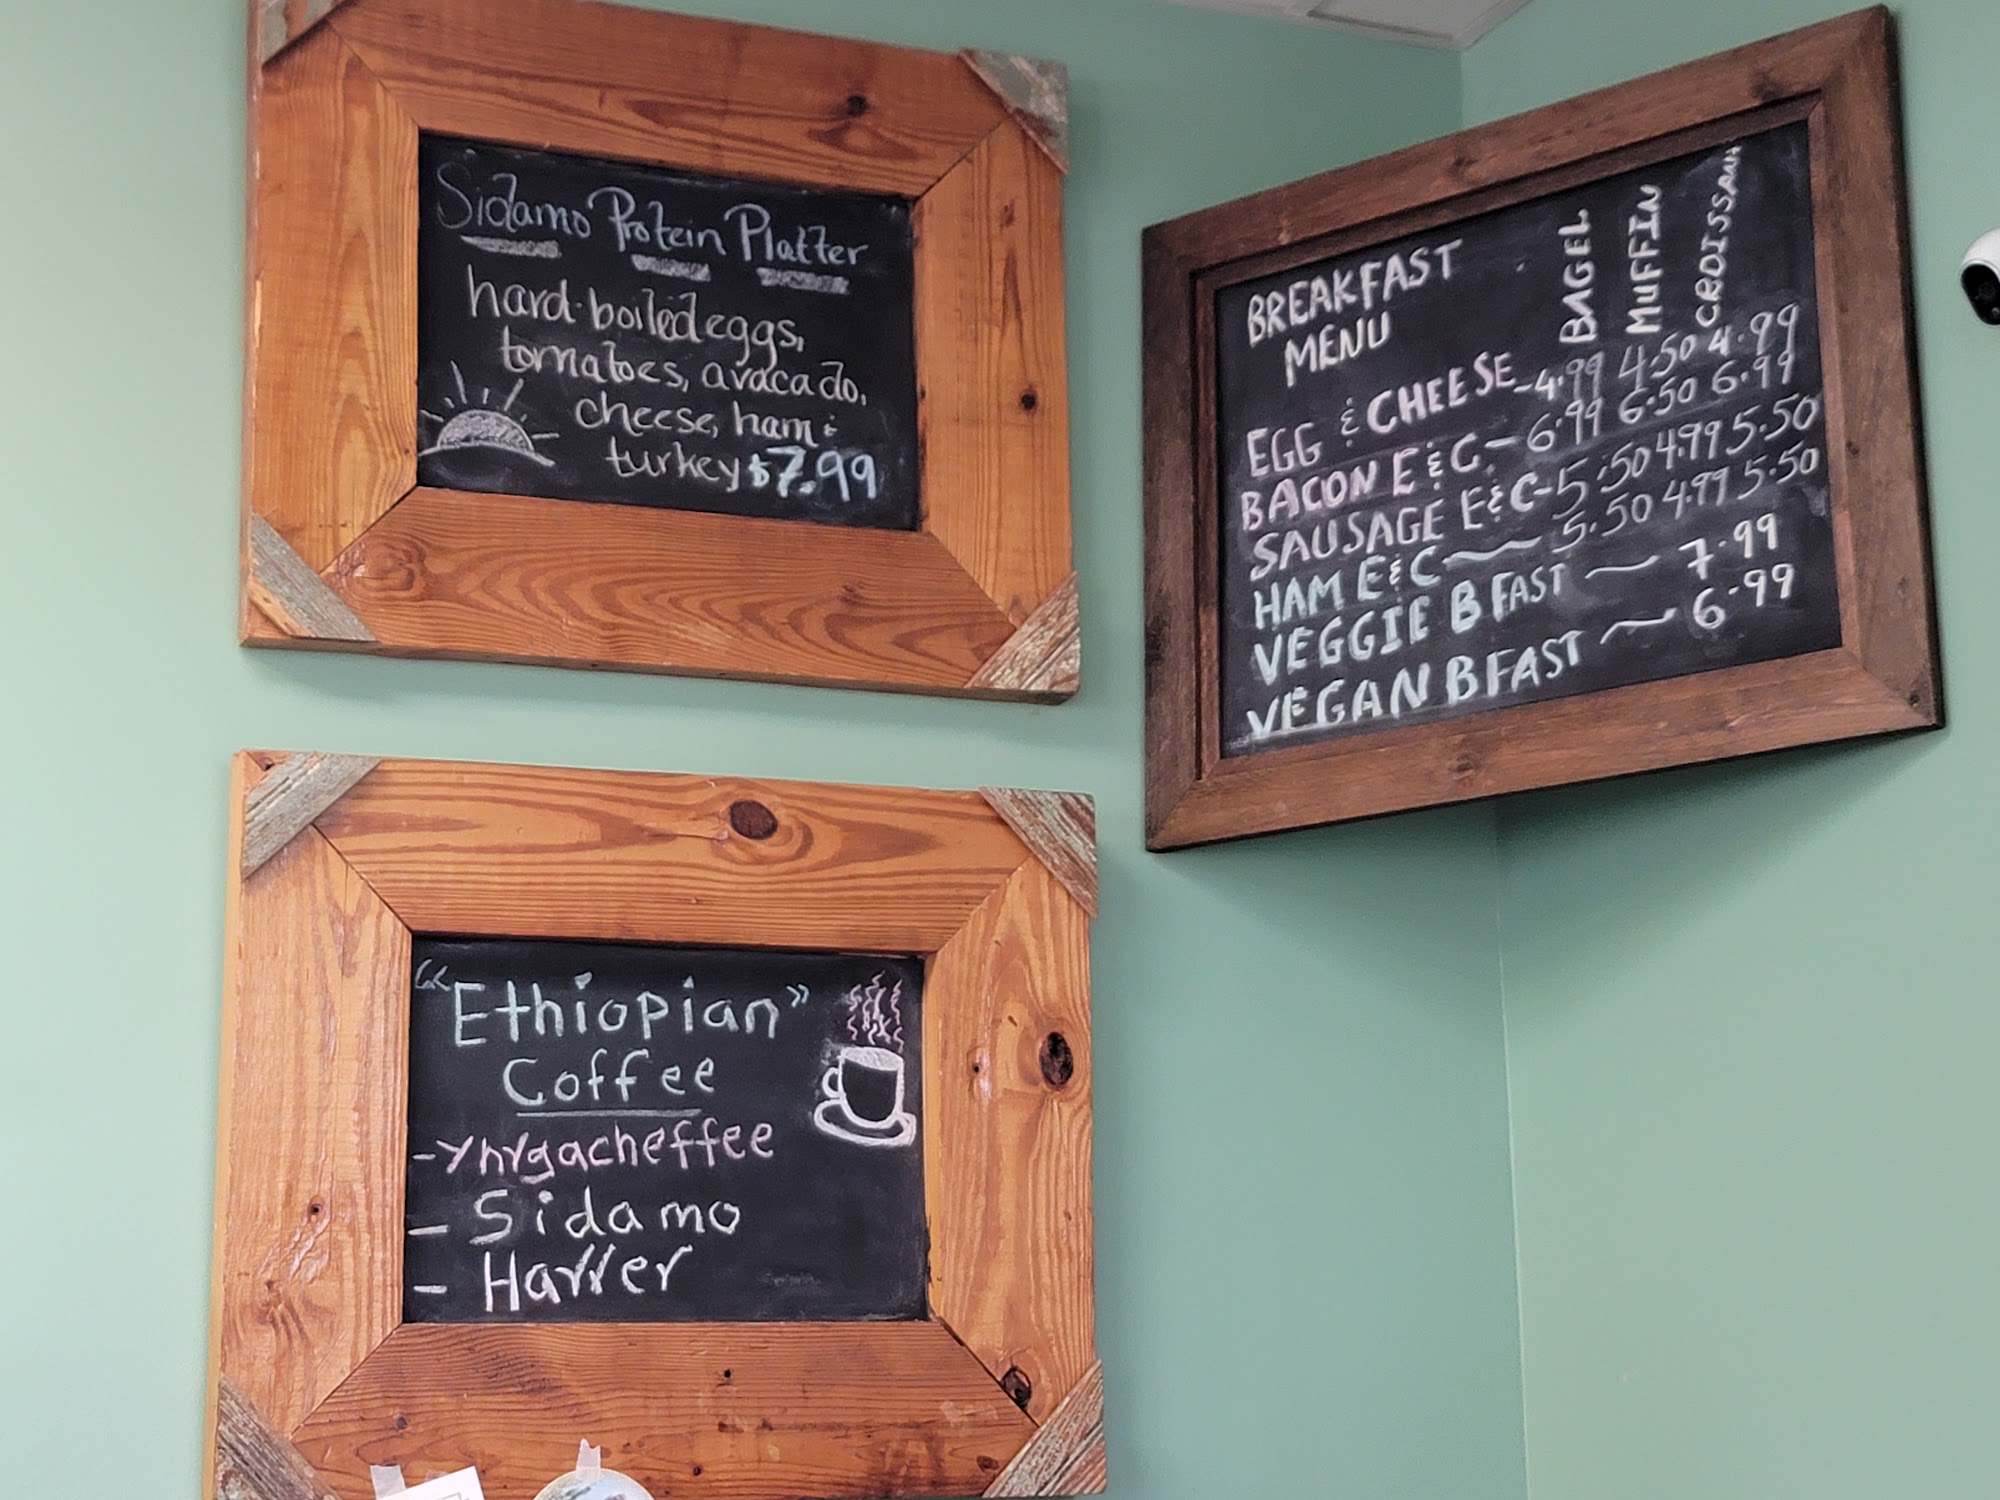 Sidamo Protein Platter
hard-boiled eggs,
tomatoes, avacado,
cheese, ham &
turkey $7.99
"Ethiopian"
Coffee
- Yhrgacheffee
- Sidamo
- Harrer
BREAKFAST
MENU
BAGEL MUFFIN CROISSANT
EGG & CHEESE - 4.99 4.50 4.99
BACON E & C - 6.99 6.50 6.99
SAUSAGE E & C - 5.50 4.99 5.50
HAM E & C - 5.50 4.99 5.50
VEGGIE BFAST - 7.99
VEGAN BFAST - 6.99